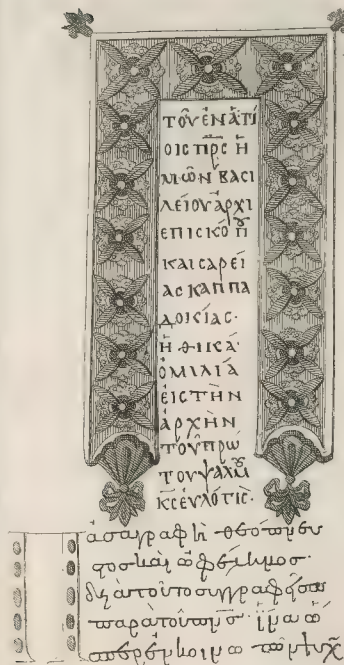 ΤΟΥ ἘΝ ἉΓΙ
ΟΙΣ ΠΡΣ Ἡ
ΜΩΝ ΒΑΣΙ
ΛΕΙΟΥ ἈΡΧΙ
ΕΠΙΣΚΟΠ
ΚΑΙΣΑΡΕΙ
ΑΣ ΚΑΠΠΑ
ΔΟΚΙΑΣ·
ἨΘΙΚΑ·
ὉΜΙΛΙΑ
ΕΙΣ ΤῊΝ
ἈΡΧῊΝ
ΤΟΥ ΠΡΩ
ΤΟΥ ΨΑΛΜ
ΚΕ ΕΥΛΟΓ
πᾶσα γραφὴ θεόπνευ
στος καὶ ὠφέλιμος·
διὰ τοῦτο συγγραφεῖσα
παρὰ τοῦ πνς· ἵνα ὡ
σπερ ἐν κοινῷ τῶν ψυχ